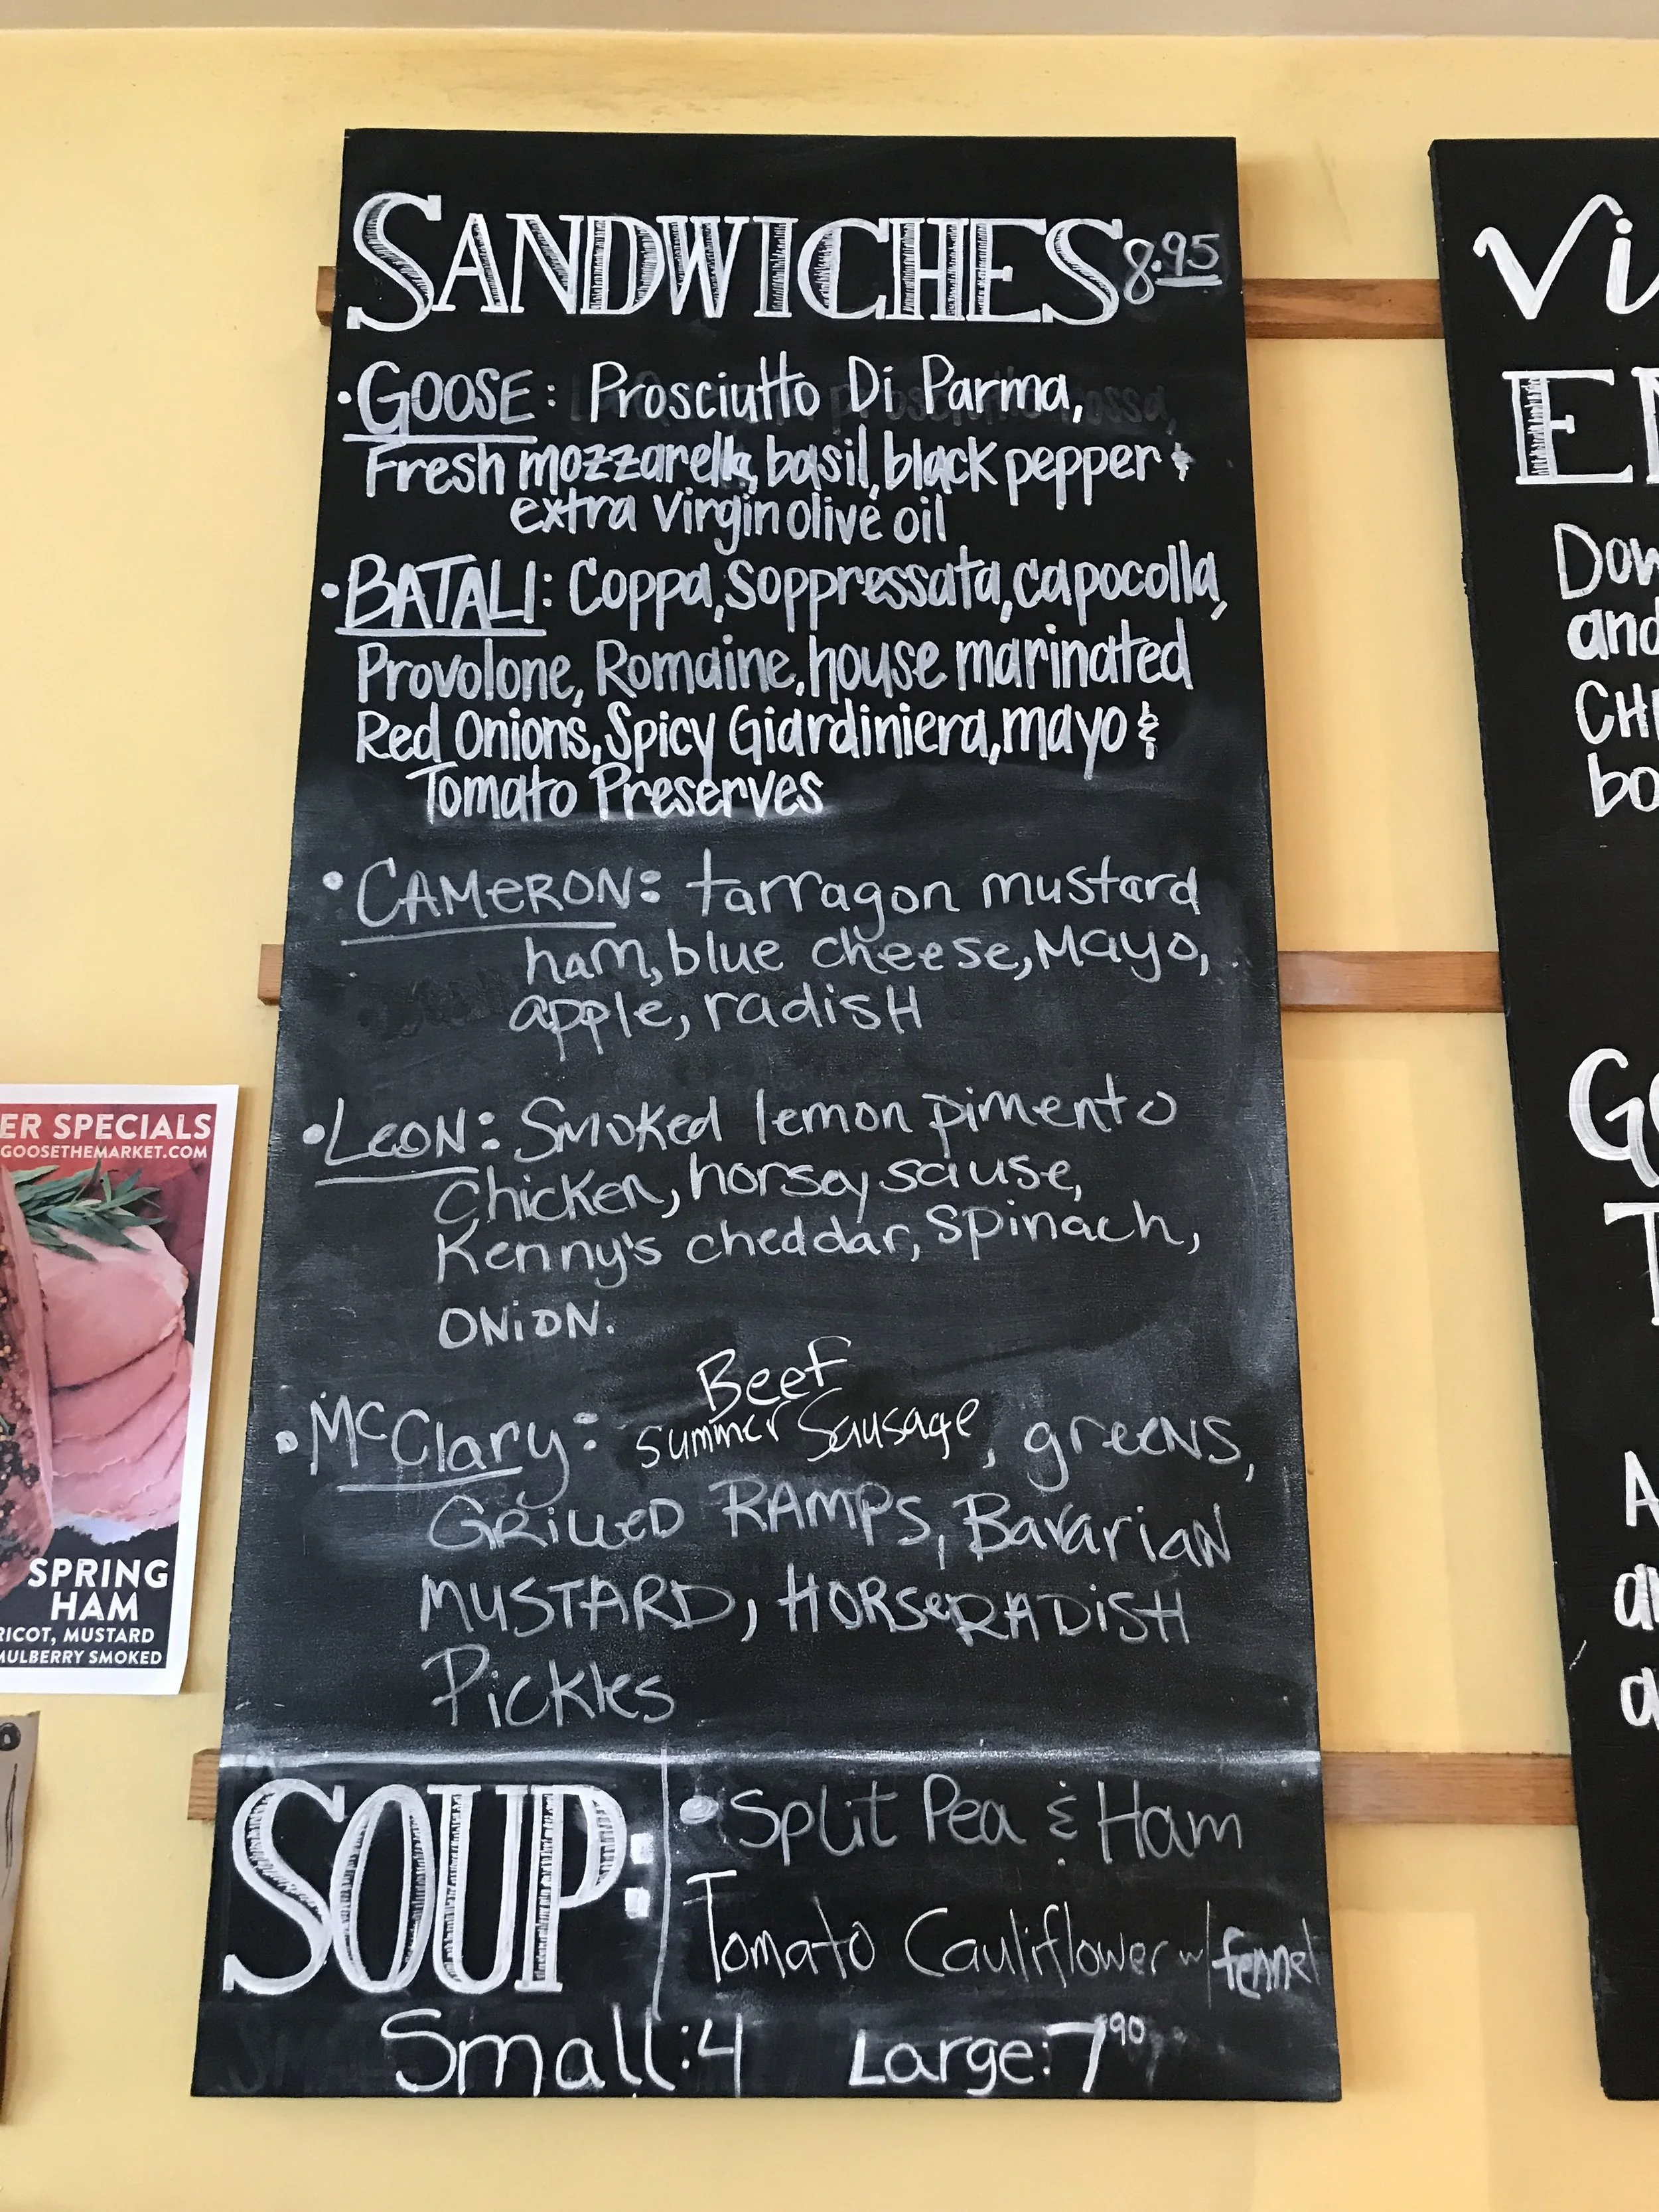 SANDWICHES 8.95
• GOOSE: Prosciutto Di Parma,
Fresh mozzarella, basil, black pepper &
extra virgin olive oil
• BATALI: Coppa, Soppressata, capocolla,
Provolone, Romaine, house marinated
Red Onions, Spicy Giardiniera, mayo &
Tomato Preserves
• CAMERON: tarragon mustard
ham, blue cheese, Mayo,
apple, radish
• LEON: Smoked lemon pimento
Chicken, horsey sause,
Kenny's cheddar, Spinach,
ONION.
Beef
• McClary: summer Sausage, greens,
GRILLED RAMPS, Bavarian
MUSTARD, HORSERADISH
Pickles
SOUP:
• Split Pea & Ham
Tomato Cauliflower w/ fennel
Small: 4 Large: 7 90
ER SPECIALS
GOOSETHEMARKET.COM
SPRING
HAM
RICOT, MUSTARD
MULBERRY SMOKED
Vi
E
Dow
and
CH
bo
G
T
A
a
a